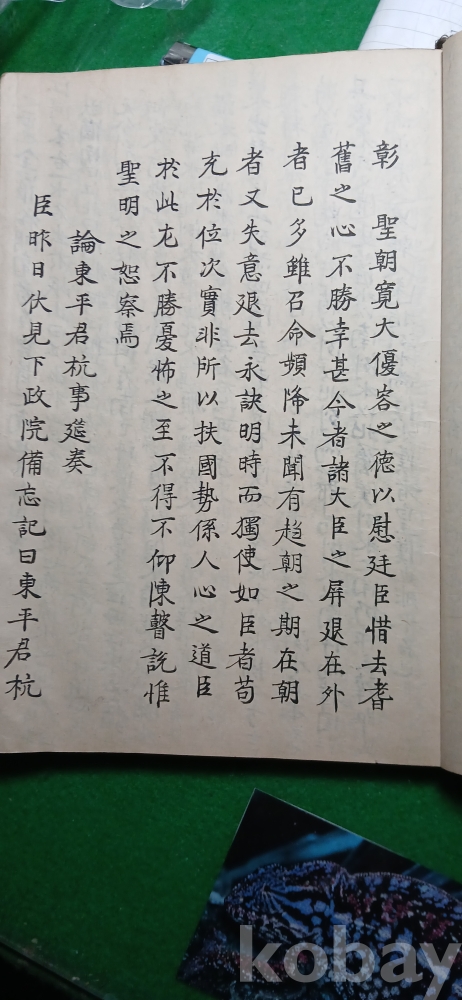 彰 聖朝寬大優容之德以慰廷臣惜去耆
舊之心不勝幸甚今者諸大臣之屏退在外
者已多雖召命頻降未聞有趍朝之期在朝
者又失意退去永訣明時而獨使如臣者苟
充於位次實非所以扶國勢係人心之道臣
於此尤不勝憂怖之至不得不仰陳瞽說惟
聖明之恕察焉
論東平君杭事遞奏
臣昨日伏見下政院備忘記曰東平君杭
kobay